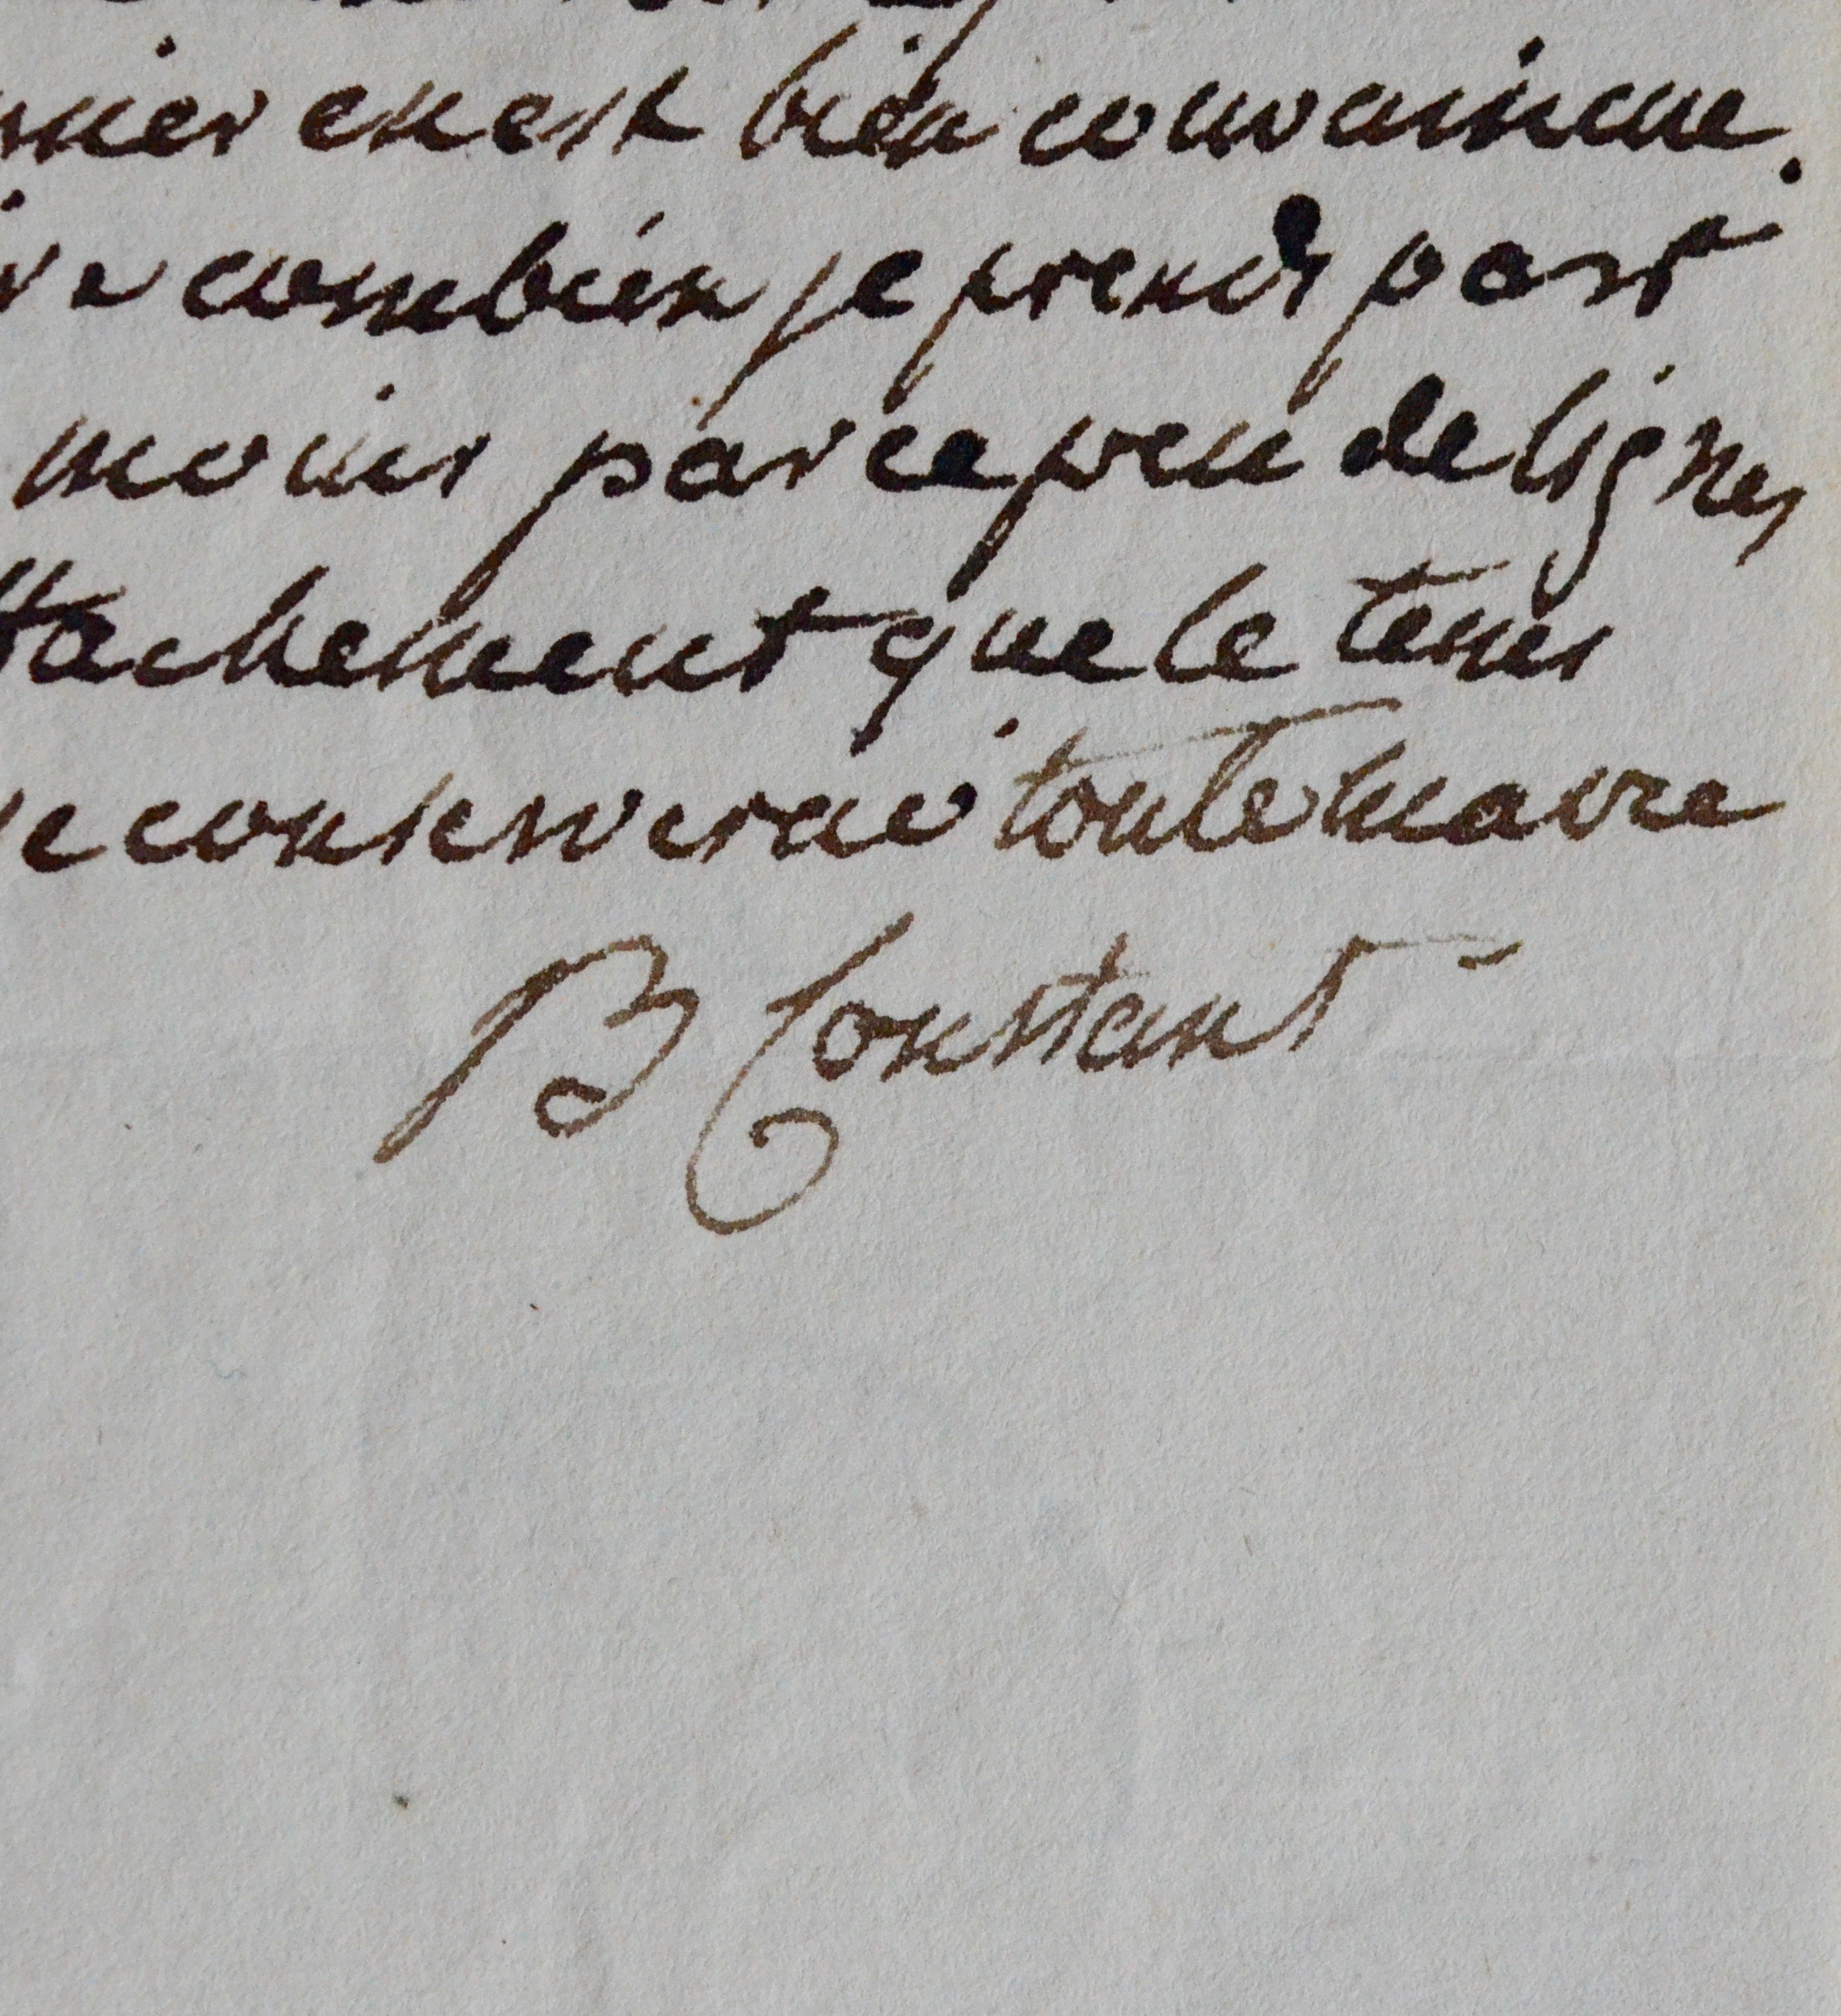 en est bien convaincue.
combien je prends part
moins par ce peu de lignes
ttachement que le tems
conserverai toute ma vie
B Constant